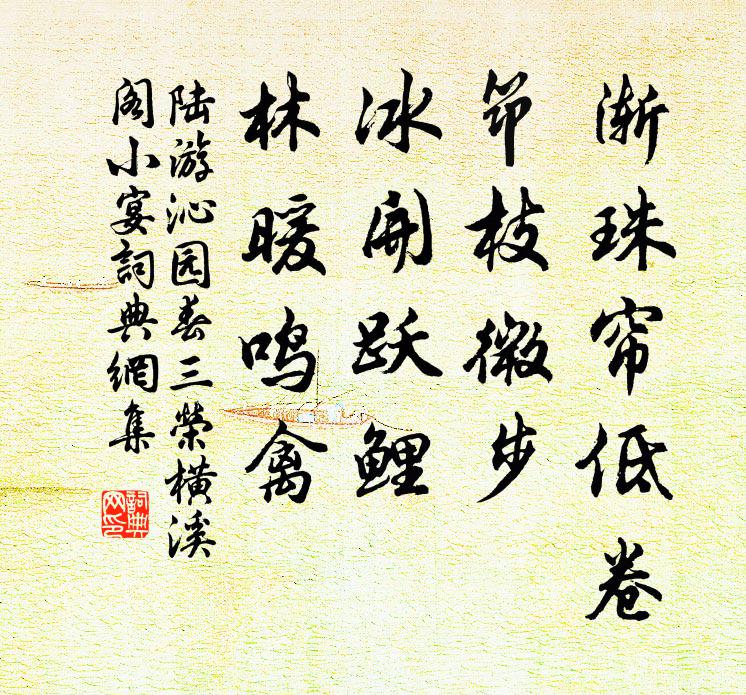 渐珠帘低卷
筇枝微步
冰开跃鲤
林暖鸣禽
陆游沁园春三榮橫溪
阁小宴詞典網集
詞典
网印